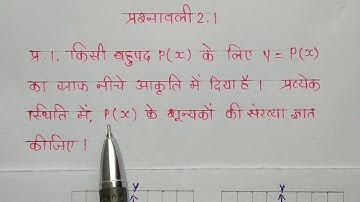 प्रश्नावली 2.1
प्र.1. किसी बहुपद P(x) के लिए y = P(x)
का ग्राफ नीचे आकृति में दिया है। प्रत्येक
स्थिति में, P(x) के शून्यकों की संख्या ज्ञात
कीजिए।
Y
Y